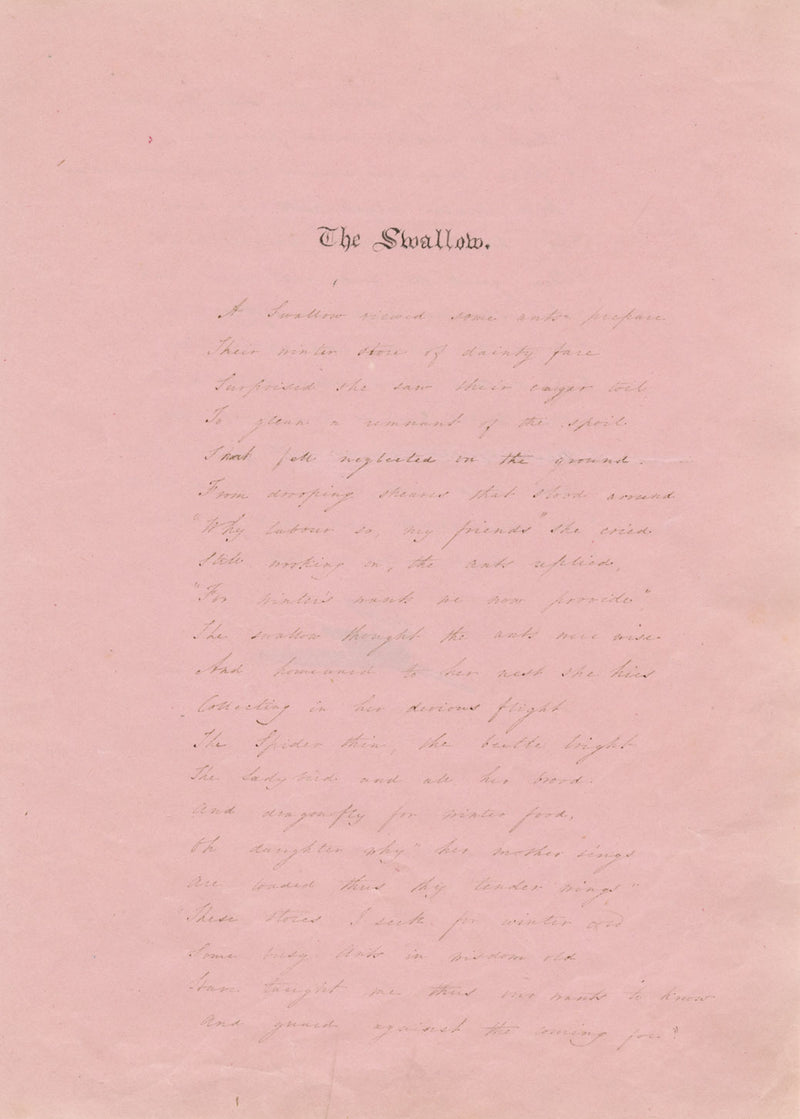 The Swallow.
A Swallow viewed some ants prepare
Their winter store of dainty fare
Surprised she saw their eager toil
To glean a remnant of the spoil
That fell neglected on the ground.
From drooping sheaves that stood around
"Why labour so, my friends" she cried
Still working on, the ants replied,
"For winter's wants we now provide"
The swallow thought the ants were wise
And homeward to her nest she hies
Collecting in her devious flight
The Spider thin, the beetle bright
The Lady bird and all her brood.
And dragonfly for winter food,
Oh daughter why" her mother sings
Are loaded thus "thy tender wings"
"These stores I seek for winter
Some busy Ants in wisdom old
Have taught me thus our wants to know
And guard against the coming foe"